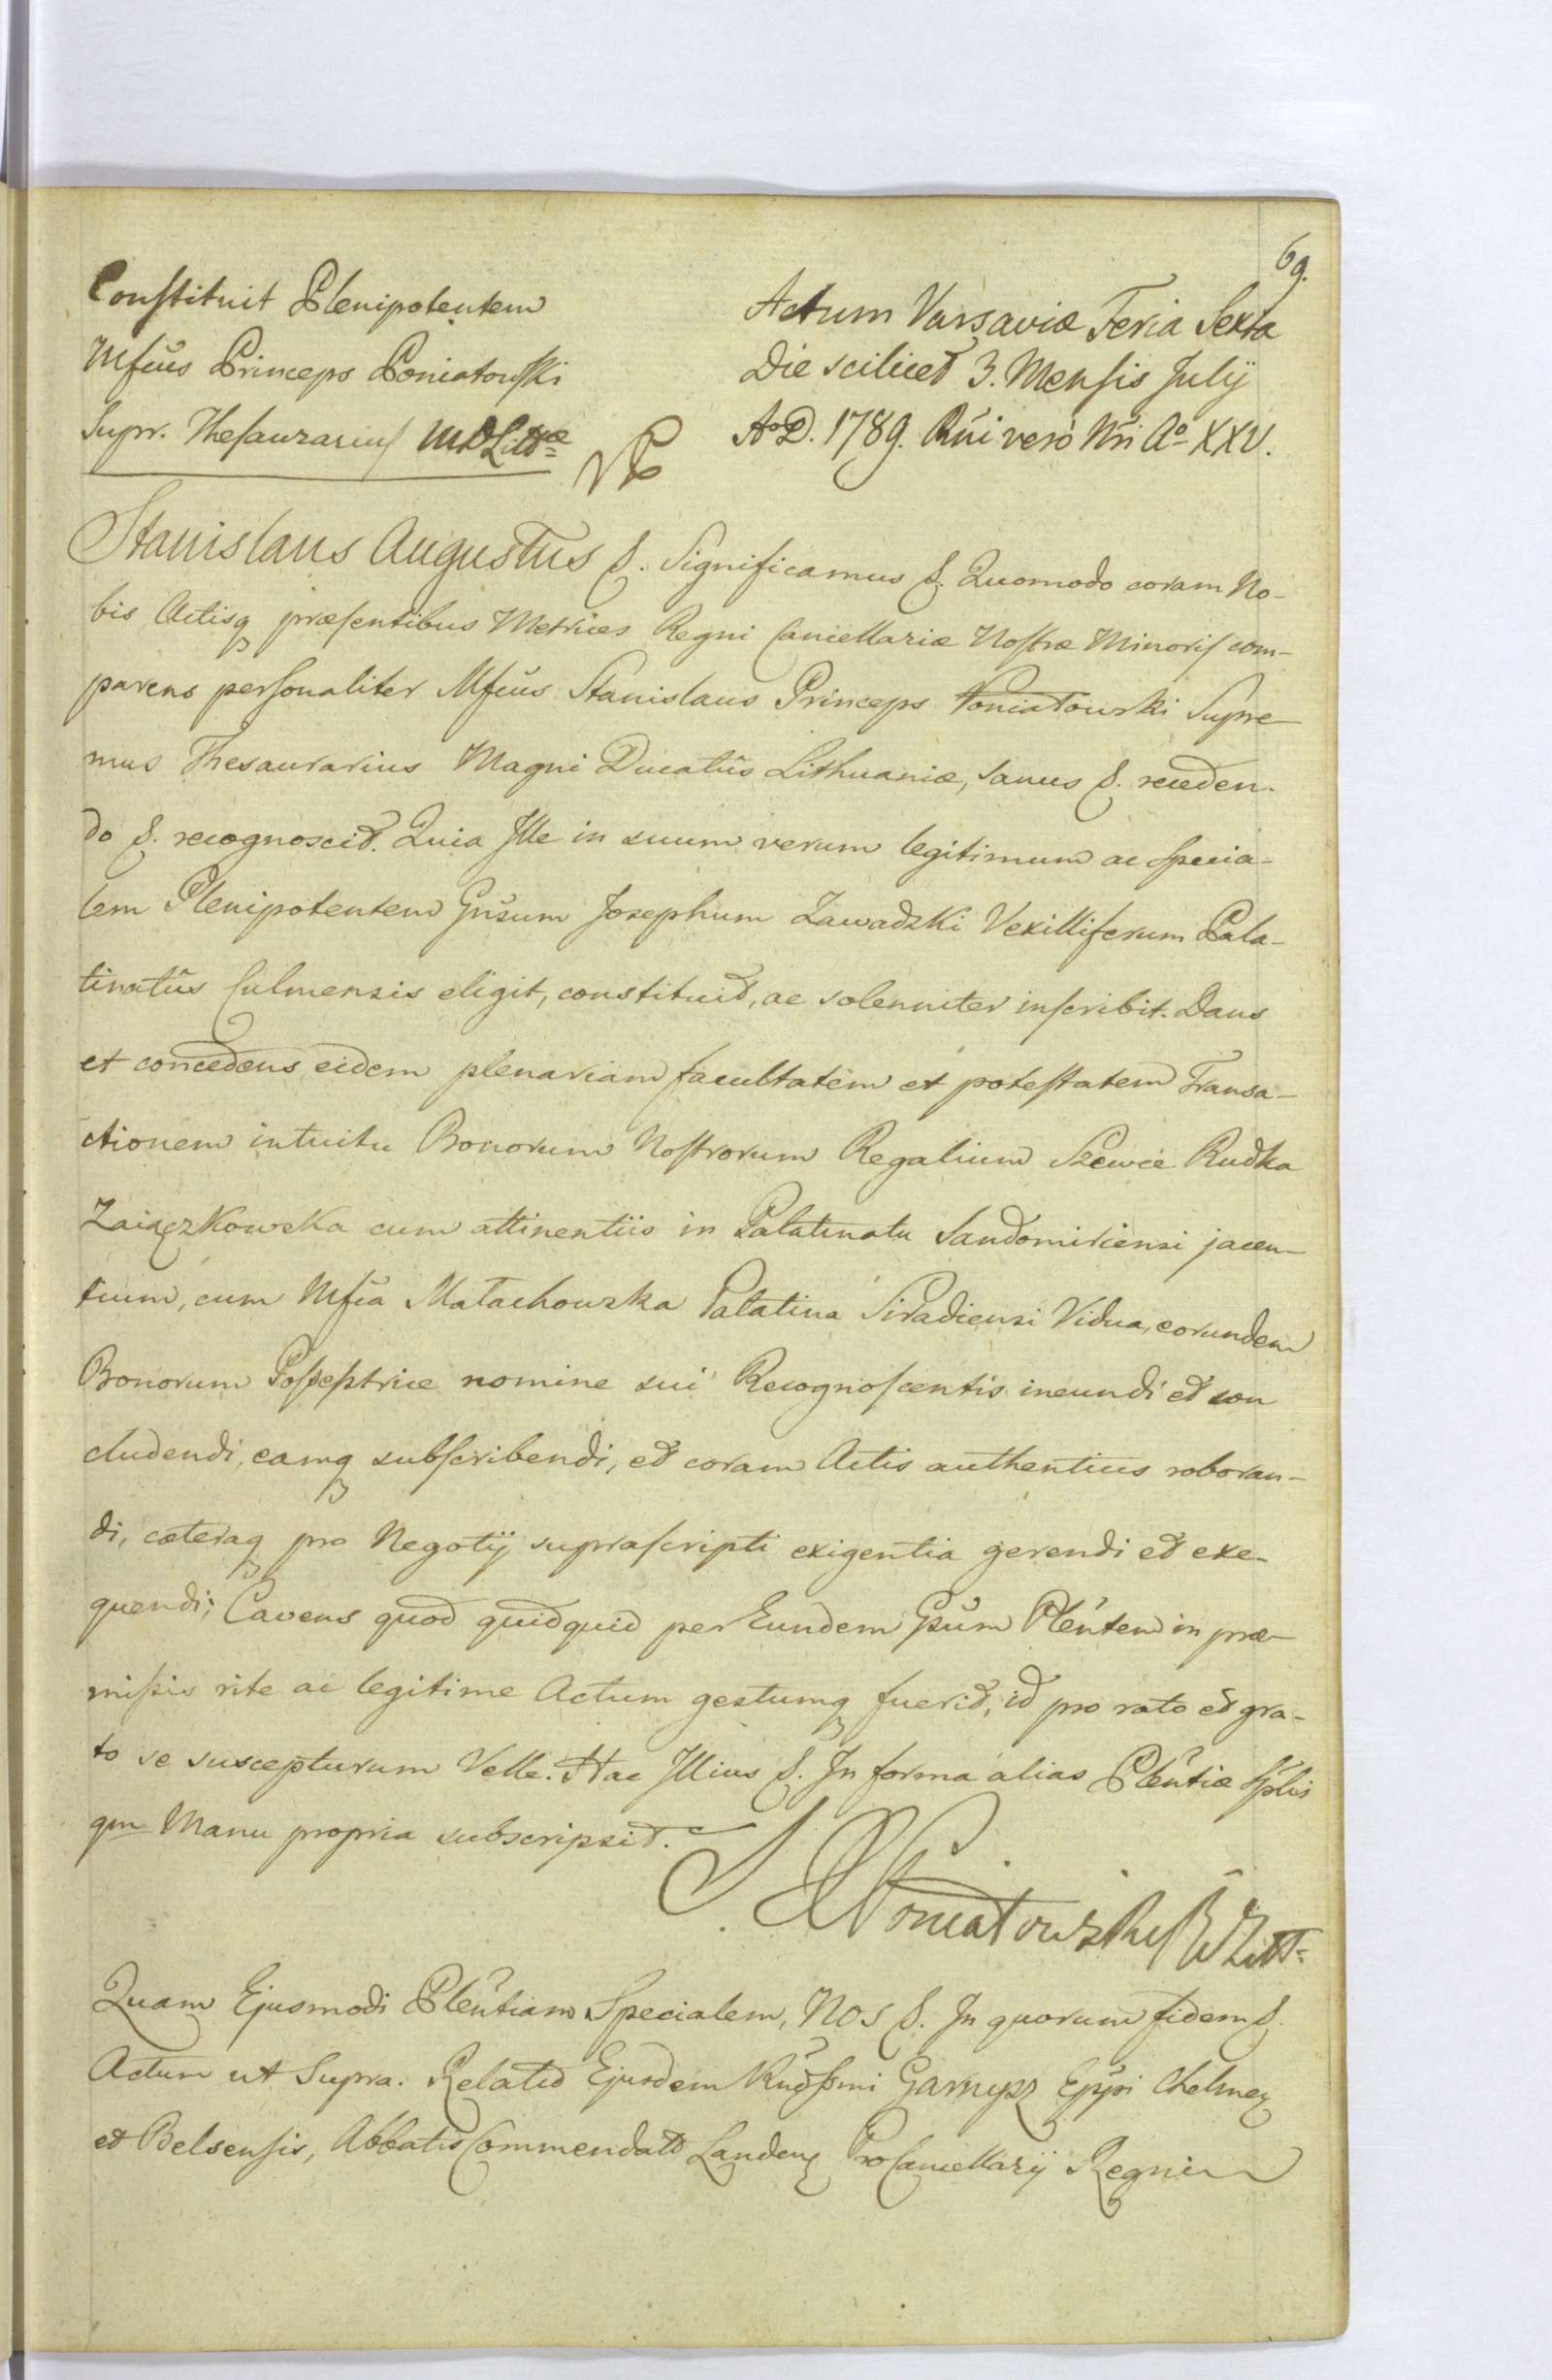 69.
Constituit Plenipotentem
Mfcus Princeps Poniatowski
Supr. Thesaurarius MDLittæ
Actum Varsaviæ Feria Sexta
Die scilicet 3. Mensis Julij
AoD. 1789. Rñi verò Nri Aº XXV.
Stanislaus Augustus &. Significamus &. Quomodo coram No-
bis Actisq præsentibus Metrices Regni Cancellariæ Nostræ Minoris com-
parens personaliter Mfcus Stanislaus Princeps Poniatowski Supre-
mus Thesaurarius Magni Ducatûs Lithuaniæ, sanus &. receden-
do &. recognoscit. Quia Ille in suum verum legitimum ac specia-
lem Plenipotentem Gnsum Josephum Zawadzki Vexilliferum Pala-
tinatûs Culmensis eligit, constituit, ac solenniter inscribit. Dans
et concedens eidem plenariam facultatem et potestatem Transa-
ctionem intuitu Bonorum Nostrorum Regalium Szewce Rudka
Zaiączkowska cum attinentiis in Palatinatu Sandomiriensi jacen-
tium, cum Mfca Małachowska Palatina Siradiensi Vidua, eorundem
Bonorum Possestrice nomine sui Recognoscentis ineundi et con
cludendi, eamq subscribendi, et coram Actis authenticis roboran-
di, cæteraq pro Negotij suprascripti exigentia gerendi et exe-
quendi; Cavens quod quidquid per Eundem Gsum Plentem in præ-
missis rite ac legitime Actum gestumq fuerit, id pro rato et gra-
to se suscepturum Velle. Hac Illius &. In forma alias Plentiæ Splis
qm Manu propria subscripsit.
S. X Poniatowski PWLitt.
Quam Ejusmodi Plentiam Specialem, NOS &. In quorum fidem &.
Actum ut Supra. Relatio Ejusdem Rndssmi Garnysz Eppi Chelmen
et Belsensis, Abbatis Commendatt Landen ProCancellarij Regni